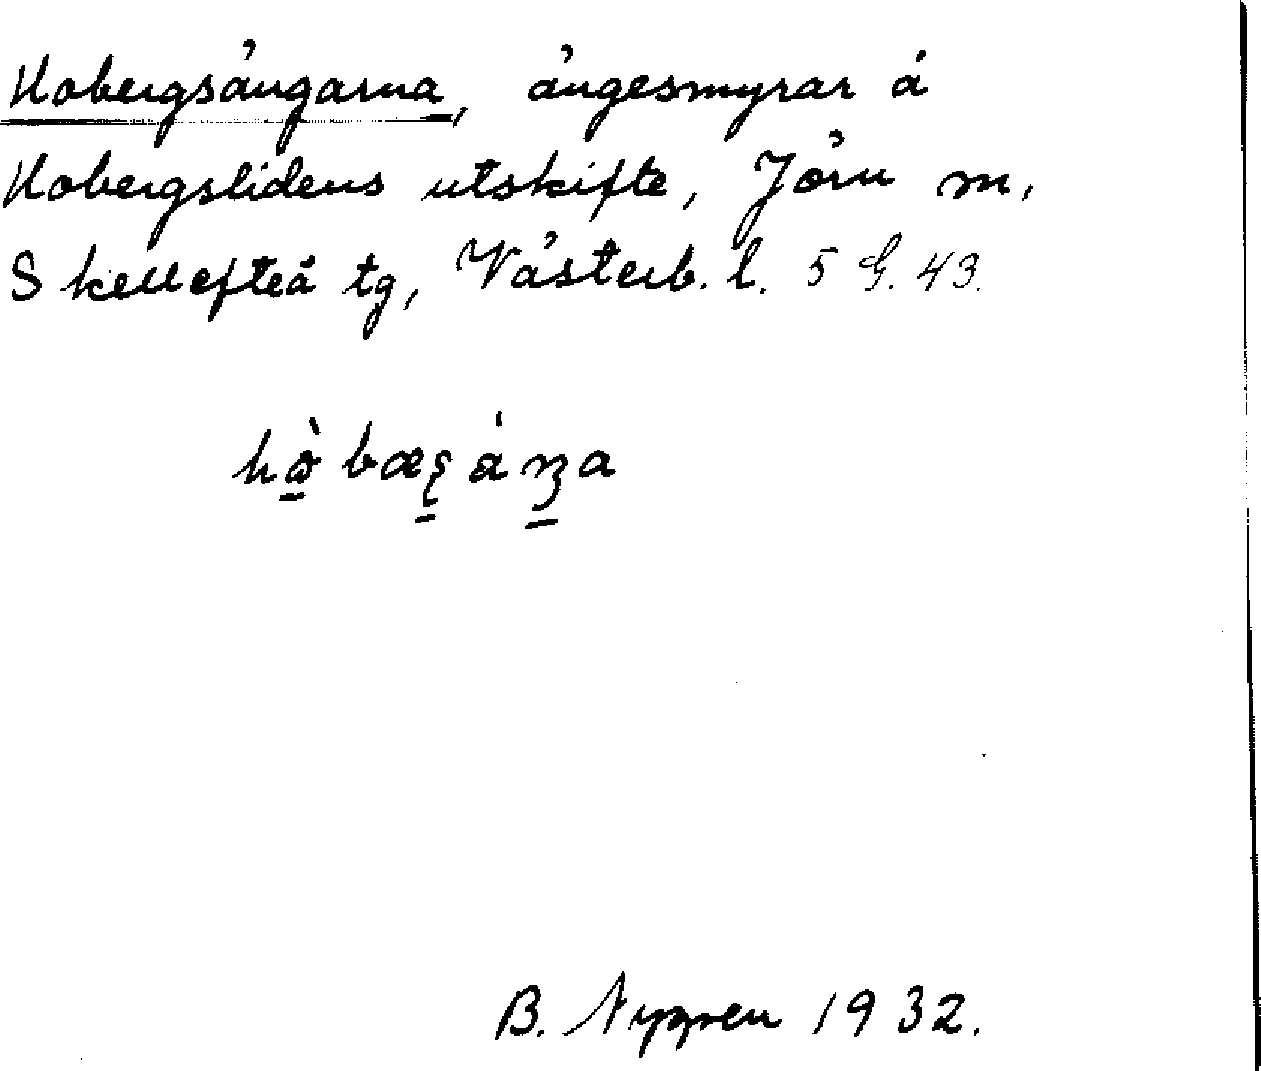 Hobergsängarna, ängesmyrar å
Hobergslidens utskifte, Jörn m,
Skellefteå tg, Västerb. l. 5 G. 43.
B. Nygren 1932.